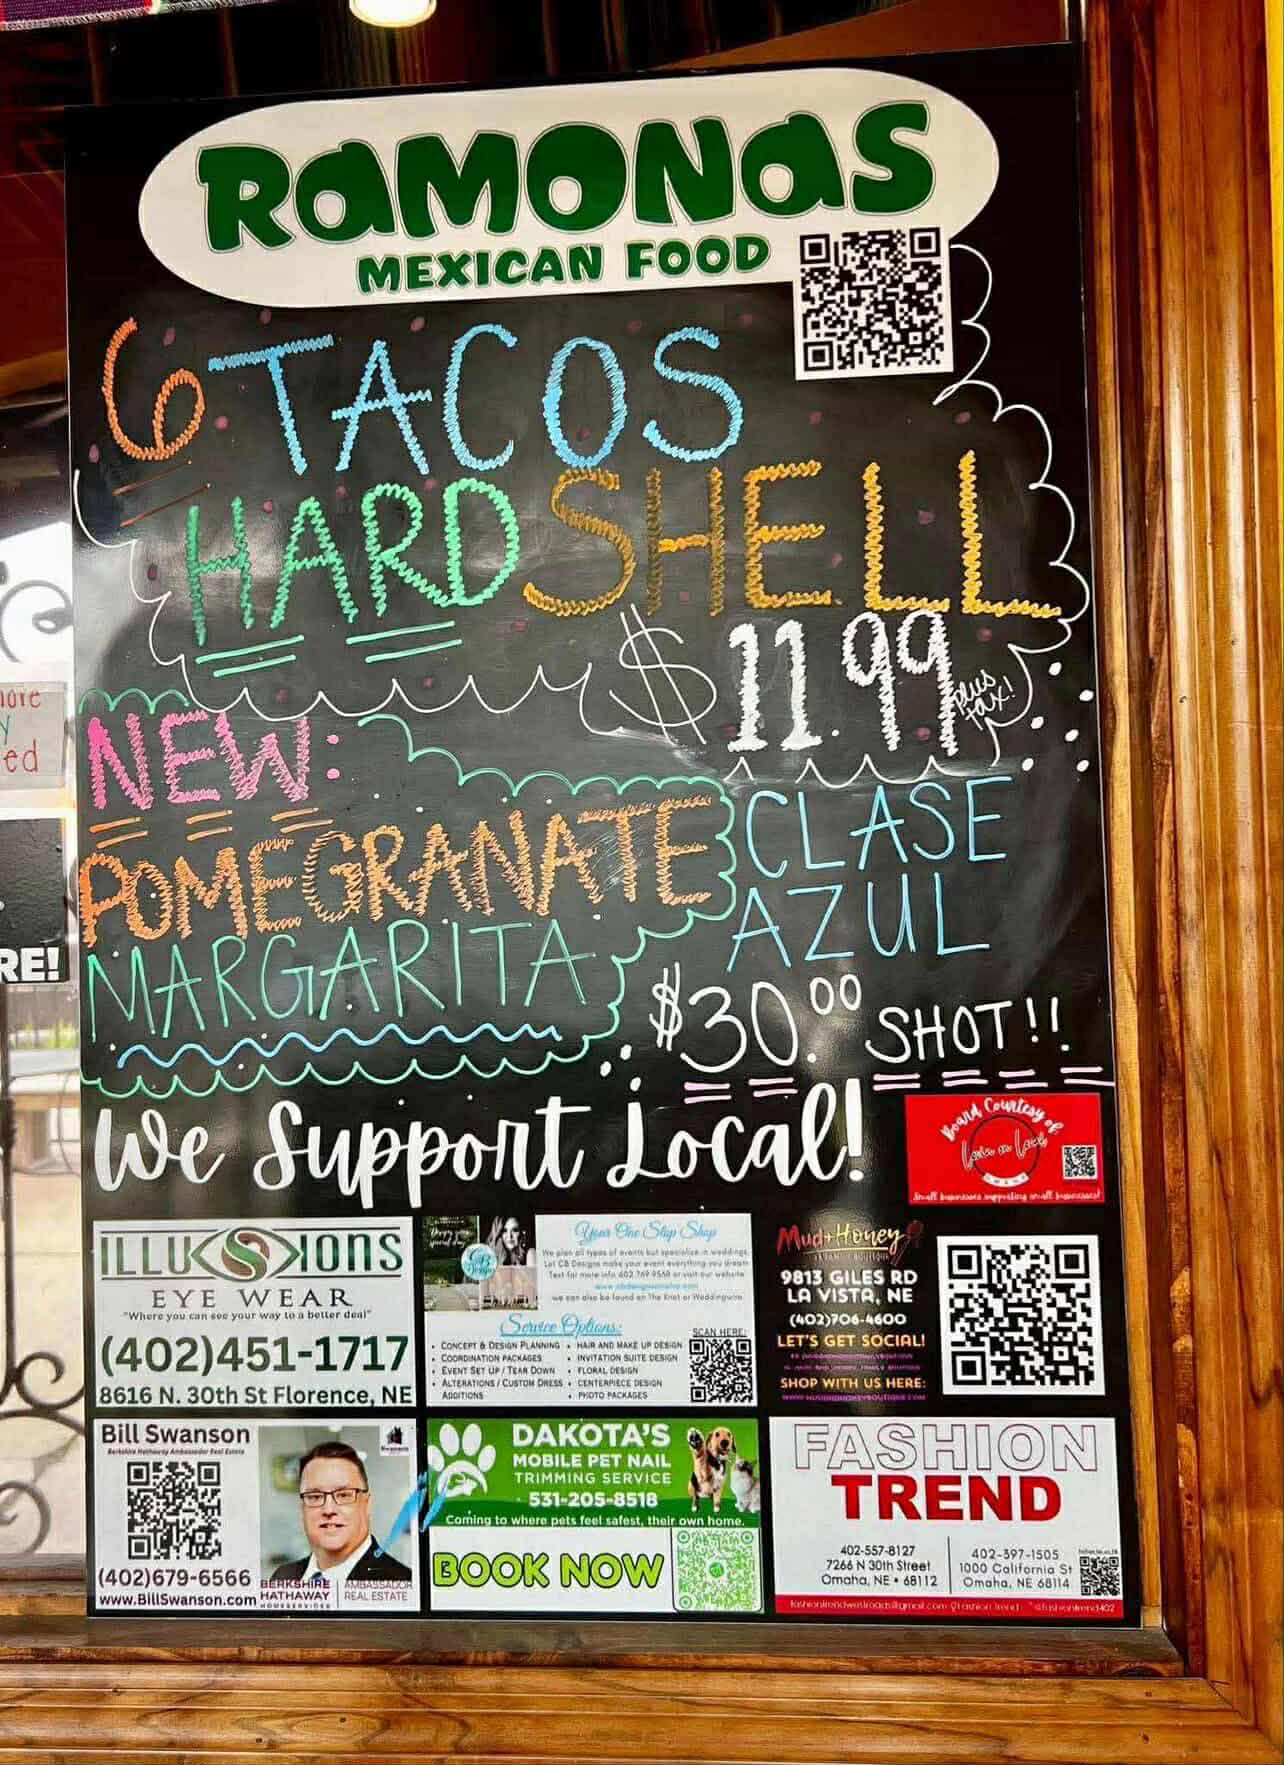 RAMONAS
MEXICAN FOOD
6 TACOS
HARD SHELL
$11.99
plus
tax!
NEW:
POMEGRANATE
MARGARITA
CLASE
AZUL
$30.00 SHOT!!
We Support Local!
Board Courtesy of
Small businesses supporting small businesses!
ore
y
ed
RE!
ILLUSIONS
EYE WEAR
"Where you can see your way to a better deal"
(402)451-1717
8616 N. 30th St Florence, NE
Your One Stop Shop
We plan all types of events but specialize in weddings.
Let CB Designs make your event everything you dream
Text for more info 402.769.9568 or visit our website
we can also be found on The Knot or Weddingwire
Service Options:
SCAN HERE:
• CONCEPT & DESIGN PLANNING
• COORDINATION PACKAGES
• EVENT SET UP / TEAR DOWN
• ALTERATIONS / CUSTOM DRESS
ADDITIONS
• HAIR AND MAKE UP DESIGN
• INVITATION SUITE DESIGN
• FLORAL DESIGN
• CENTERPIECE DESIGN
• PHOTO PACKAGES
Mud+Honey
9813 GILES RD
LA VISTA, NE
(402)706-4600
LET'S GET SOCIAL!
SHOP WITH US HERE:
Bill Swanson
Berkshire Hathaway Ambassador Real Estate
(402)679-6566
www.BillSwanson.com
BERKSHIRE
HATHAWAY
HOMESERVICES
AMBASSADOR
REAL ESTATE
DAKOTA'S
MOBILE PET NAIL
TRIMMING SERVICE
531-205-8518
Coming to where pets feel safest, their own home.
BOOK NOW
FASHION
TREND
402-557-8127
7266 N 30th Street
Omaha, NE • 68112
402-397-1505
1000 California St
Omaha, NE 68114